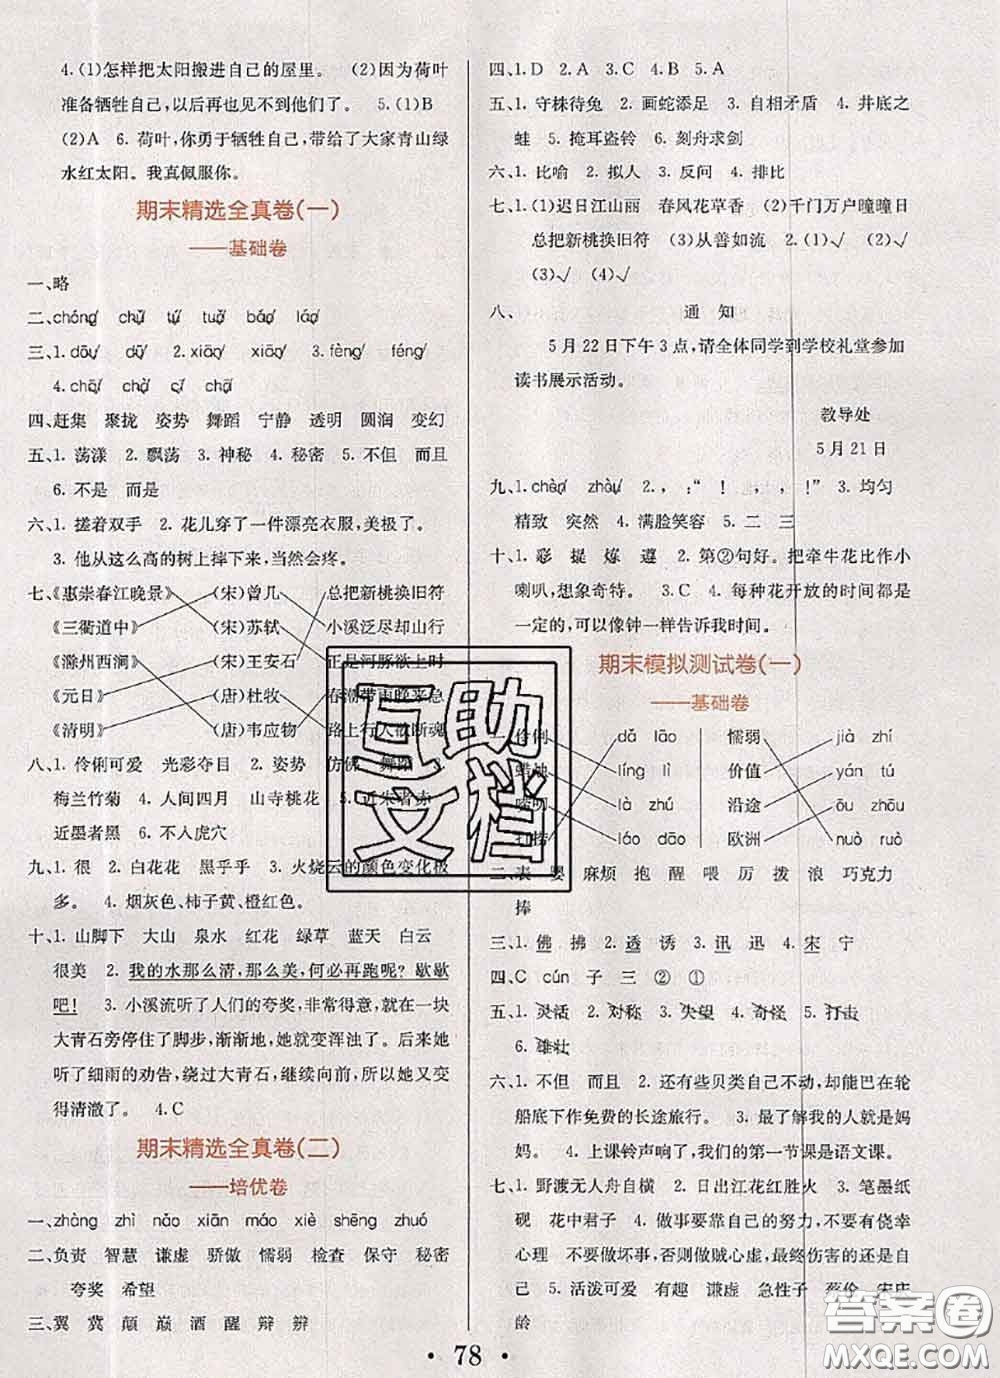 4.(1)怎样把太阳搬进自己的屋里。 (2)因为荷叶
准备牺牲自己,以后再也见不到他们了。 5.(1)B
(2)A 6.荷叶,你勇于牺牲自己,带给了大家青山绿
水红太阳。我真佩服你。
期末精选全真卷(一)
——基础卷
一、略
四、赶集 聚拢 姿势 舞蹈 宁静 透明 圆润 变幻
五、1.荡漾 2.飘荡 3.神秘 4.秘密 5.不但 而且
6.不是 而是
六、1.搓着双手 2.花儿穿了一件漂亮衣服,美极了。
3.他从这么高的树上摔下来,当然会疼。
七、《惠崇春江晚景》 (宋)曾几 总把新桃换旧符
《三衢道中》 (宋)苏轼 小溪泛尽却山行
《滁州西涧》 (宋)王安石 正是河豚欲上时
《元日》 (唐)杜牧 春潮带雨晚来急
《清明》 (唐)韦应物 路上行人欲断魂
八、1.伶俐可爱 光彩夺目 2.姿势 仿佛 舞蹈 3.
梅兰竹菊 4.人间四月 山寺桃花 5.近朱者赤
近墨者黑 6.不入虎穴
九、1.很 2.白花花 黑乎乎 3.火烧云的颜色变化极
多。 4.烟灰色、柿子黄、橙红色。
十、1.山脚下 大山 泉水 红花 绿草 蓝天 白云
很美 2.我的水那么清,那么美,何必再跑呢?歇歇
吧! 3.小溪流听了人们的夸奖,非常得意,就在
大青石旁停住了脚步,渐渐地,她就变浑浊了。后来她
听了细雨的劝告,绕过大青石,继续向前,所以她又变
得清澈了。 4.C
期末精选全真卷(二)
——培优卷
一、zhàng zhì nǎo xiān máo xiè shēng zhuó
二、负责 智慧 谦虚 骄傲 懦弱 检查 保守 秘密
夸奖 希望
三、翼 冀 颠 巅 酒 醒 辩 辨
· 78 ·
四、1.D 2.A 3.C 4.B 5.A
五、1.守株待兔 2.画蛇添足 3.自相矛盾 4.井底之
蛙 5.掩耳盗铃 6.刻舟求剑
六、1.比喻 2.拟人 3.反问 4.排比
七、1.(1)迟日江山丽 春风花草香 (2)千门万户曈曈日
总把新桃换旧符 (3)从善如流 2.(1)√ (2)√
(3)√ (4)√
八、 通 知
5月22日下午3点,请全体同学到学校礼堂参加
读书展示活动。
教导处
5月21日
九、1. 2.,:“！,,！” 3.均匀
精致 突然 4.满脸笑容 5.二 三
十、1.彩 提 炼 遵 2.第②句好。把牵牛花比作小
喇叭,想象奇特。 3.C 4.每种花开放的时间都是
一定的,可以像钟一样告诉我时间。
期末模拟测试卷(一)
——基础卷
一、伶俐 dǎ lāo 懦弱 jià zhí
蜡烛 líng lì 价值 yán tú
嘹亮 là zhú 沿途 ōu zhōu
打捞 欧洲 nuò ruò
二、表 婴 麻烦 抱 醒 喂 厉 拨 浪 巧克力
捧
三、1.佛 拂 2.透 诱 3.讯 迅 4.宋 宁
四、C cún 子 三 ② ①
五、1.灵活 2.对称 3.失望 4.奇怪 5.打击
6.雄壮
六、1.不但 而且 2.还有些贝类自己不动,却能巴在轮
船底下作免费的长途旅行。 3.最了解我的人就是妈
妈。 4.上课铃声响了,我们的第一节课是语文课。
七、1.野渡无人舟自横 2.日出江花红胜火 3.笔墨纸
砚 花中君子 4.做事要靠自己的努力,不要有侥幸
心理 不要做坏事,否则做贼心虚,最终伤害的还是自
己 5.活泼可爱 有趣 谦虚 急性子 蔡伦
龄
互助
文档
答案圈
MXQE.COM